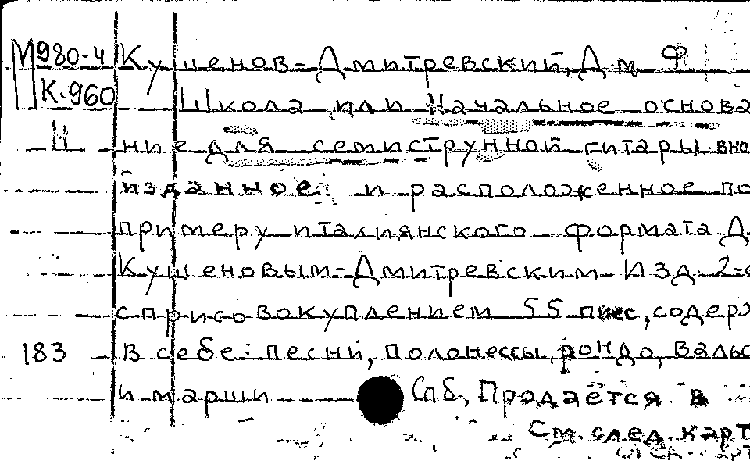 М980-4 Кушенов-Дмитревский, Дм Ф
К-960 Школа или Начальное основа
Н ние для семиструнной гитары вно
изданное и расположенное по
примеру италиянского формата Д.
Кушеновым-Дмитревским Изд. 2-е
с присовокуплением 55 пиес, содерж
183 в себе: песни, полонессы, рондо, вальс
и марши Спб, Продаётся в
См. след. карт